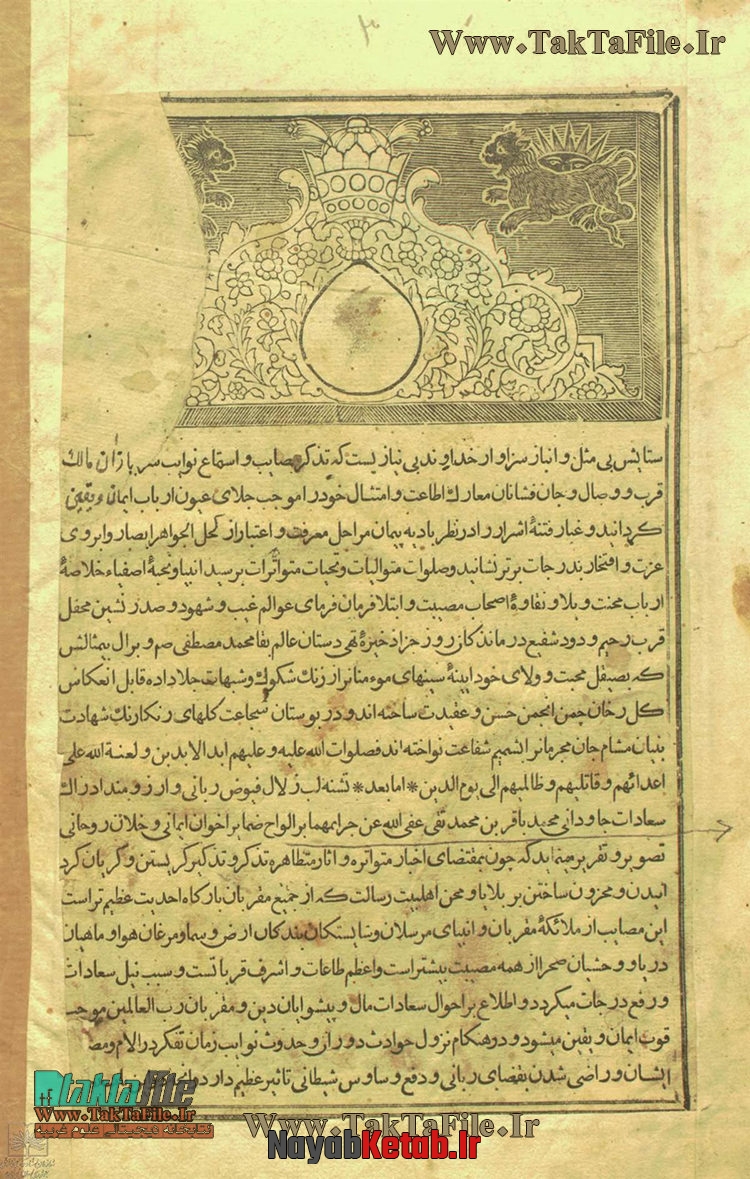 Www.TakTaFile.Ir
ستایش بی مثل و انباز سزاوار خداوند بی نیازیست که تذکر مصایب و استماع نوایب سربازان مالک
قرب و وصال و جان فشانان معارک اطاعت و امتثال خود را موجب جلای عیون ارباب ایمان و یقین
کردانید و غبار فتنهٔ اشرار را در نظر بادیه پیمان مراحل معرفت و اعتبار از کحل الجواهر ابصار و ابروی
عزت و افتخار بدرجات برتر نشانید و صلوات متوالیات و تحیات متواترات بر سید انبیا و نخبهٔ اصفیاء خلاصهٔ
ارباب محنت و بلا و نقاوهٔ اصحاب مصیبت و ابتلا فرمان فرمای عوالم غیب و شهود و صدر نشین محفل
قرب رحیم و دود شفیع درماندکان روز جزا ذخیرهٔ تهی دستان عالم بقا محمد مصطفی صم و بر ال بیمثالش
که بصیقل محبت و ولای خود ایینهٔ سینهای موءمنانرا از زنک شکوک و شبهات جلا داده قابل انعکاس
کل رخان چمن انجمن حسن و عقیدت ساخته اند و در بوستان شجاعت کلهای رنکارنک شهادت
بنیان مشام جان مجرمانرا بشمیم شفاعت نواخته اند فصلوات الله علیه و علیهم ابد الابدین و لعنة الله علی
اعدائهم و قاتلیهم و ظالمیهم الی یوم الدین * اما بعد * تشنه لب زلال فیوض ربانی و ارزومند ادراک
سعادات جاودانی محمد باقر بن محمد تقی عفی الله عن جرایمهما بر الواح ضمایر اخوان ایمانی و خلان روحانی
تصویر و تقریر مینماید که چون بمقتضای اخبار متواتره و اثار متظاهره تذکر و تذکیر کریستن و کریان کرد
انیدن و محزون ساختن بر بلایا و محن اهلبیت رسالت که از جمیع مقربان بارکاه احدیت عظیم تر است
این مصایب از ملائکهٔ مقربان و انبیای مرسلان و شایستکان بندکان ارض و سما و مرغان هوا و ماهیان
دریا و وحشیان صحرا از همه مصیبت بیشتر است و اعظم طاعات و اشرف قرباتست و سبب نیل سعادات
و رفع درجات میکردد و اطلاع بر احوال سعادات مال و پیشوایان دین و مقربان رب العالمین موجب
قوت ایمان و یقین میشود و در هنکام نزول حوادث دوران و حدوث نوایب زمان تفکر در الام و مصا
ایشان و راضی شدن بقضای ربانی و دفع وساوس شیطانی تاثیر عظیم دارد
taktafile
Www.TakTaFile.Ir
کتابخانه دیجیتالی علوم غریبه
Www.TakTaFile.Ir
NayabKetab.Ir